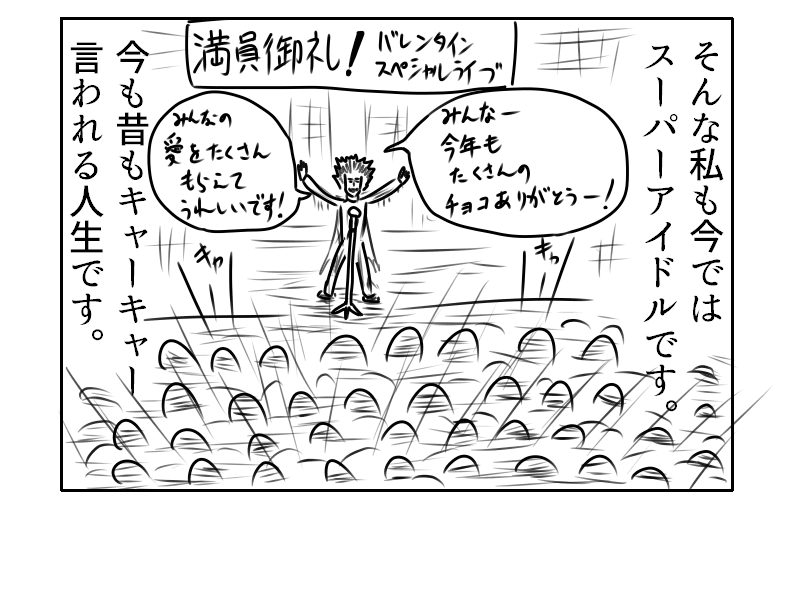 満員御礼！
バレンタイン
スペシャルライブ
そんな私も今では
スーパーアイドルです。
みんなー
今年も
たくさんの
チョコありがとうー！
みんなの
愛をたくさん
もらえて
うれしいです！
キャ
キャ
今も昔もキャーキャー
言われる人生です。